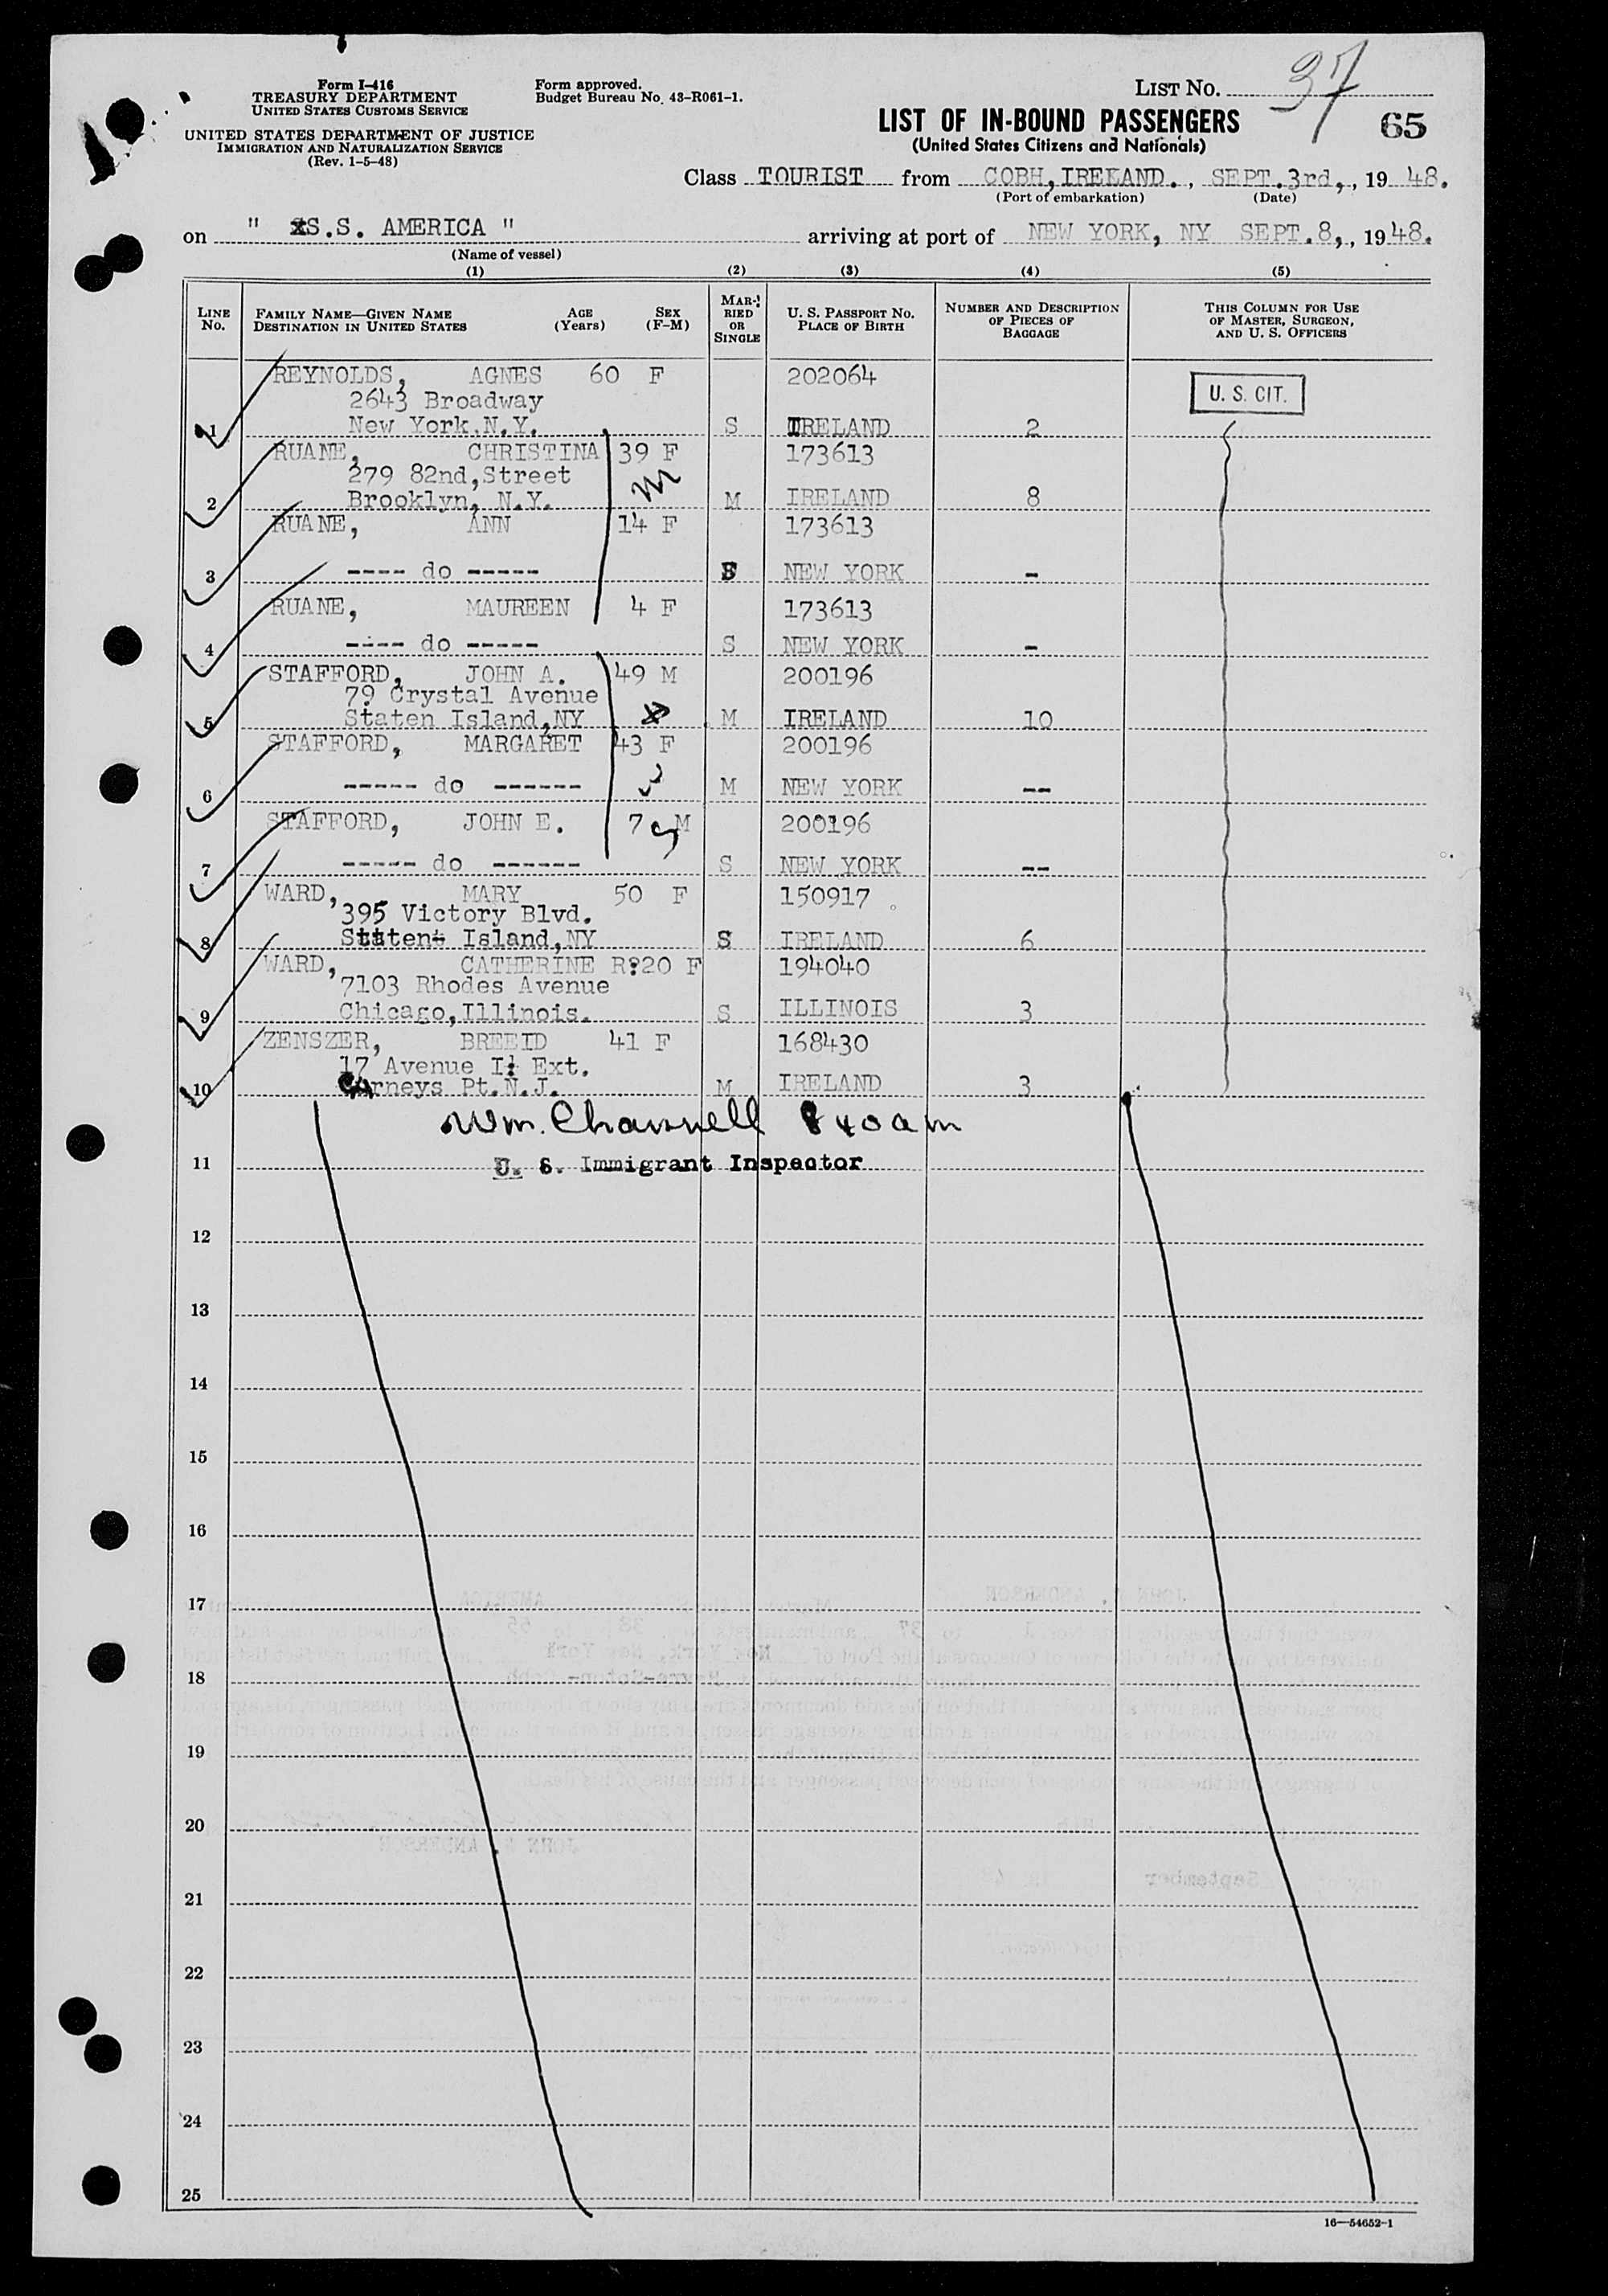 Form I-416
TREASURY DEPARTMENT
UNITED STATES CUSTOMS SERVICE
UNITED STATES DEPARTMENT OF JUSTICE
IMMIGRATION AND NATURALIZATION SERVICE
(Rev. 1-5-48)
Form approved.
Budget Bureau No. 43-R061-1.
LIST No. 37
LIST OF IN-BOUND PASSENGERS
65
(United States Citizens and Nationals)
Class TOURIST from COBH, IRELAND., SEPT.3rd,, 19 48.
(Port of embarkation) (Date)
on " S.S. AMERICA " arriving at port of NEW YORK, NY SEPT.8,, 19 48.
(Name of vessel)
(1) (2) (3) (4) (5)
LINE No.
FAMILY NAME—GIVEN NAME DESTINATION IN UNITED STATES
AGE (Years)
SEX (F-M)
MARRIED OR SINGLE
U. S. PASSPORT No. PLACE OF BIRTH
NUMBER AND DESCRIPTION OF PIECES OF BAGGAGE
THIS COLUMN FOR USE OF MASTER, SURGEON, AND U. S. OFFICERS
REYNOLDS, AGNES 60 F 202064
U. S. CIT.
2643 Broadway
1 New York, N.Y. S IRELAND 2
RUANE, CHRISTINA 39 F 173613
279 82nd, Street
2 Brooklyn, N.Y. M IRELAND 8
RUANE, ANN 14 F 173613
3 ---- do ----- S NEW YORK -
RUANE, MAUREEN 4 F 173613
4 ---- do ----- S NEW YORK -
STAFFORD, JOHN A. 49 M 200196
79 Crystal Avenue
5 Staten Island, NY M IRELAND 10
STAFFORD, MARGARET 43 F 200196
6 ----- do ------ M NEW YORK --
STAFFORD, JOHN E. 7 M 200196
7 ----- do ------ S NEW YORK --
WARD, MARY 50 F 150917
395 Victory Blvd.
8 Staten Island, NY S IRELAND 6
WARD, CATHERINE R. 20 F 194040
7103 Rhodes Avenue
9 Chicago, Illinois. S ILLINOIS 3
ZENSZER, BREEID 41 F 168430
17 Avenue I Ext.
10 Carneys Pt. N.J. M IRELAND 3
Wm. Channell 8 40 am
11 U. S. Immigrant Inspector
12
13
14
15
16
17
18
19
20
21
22
23
24
25
16—54652-1